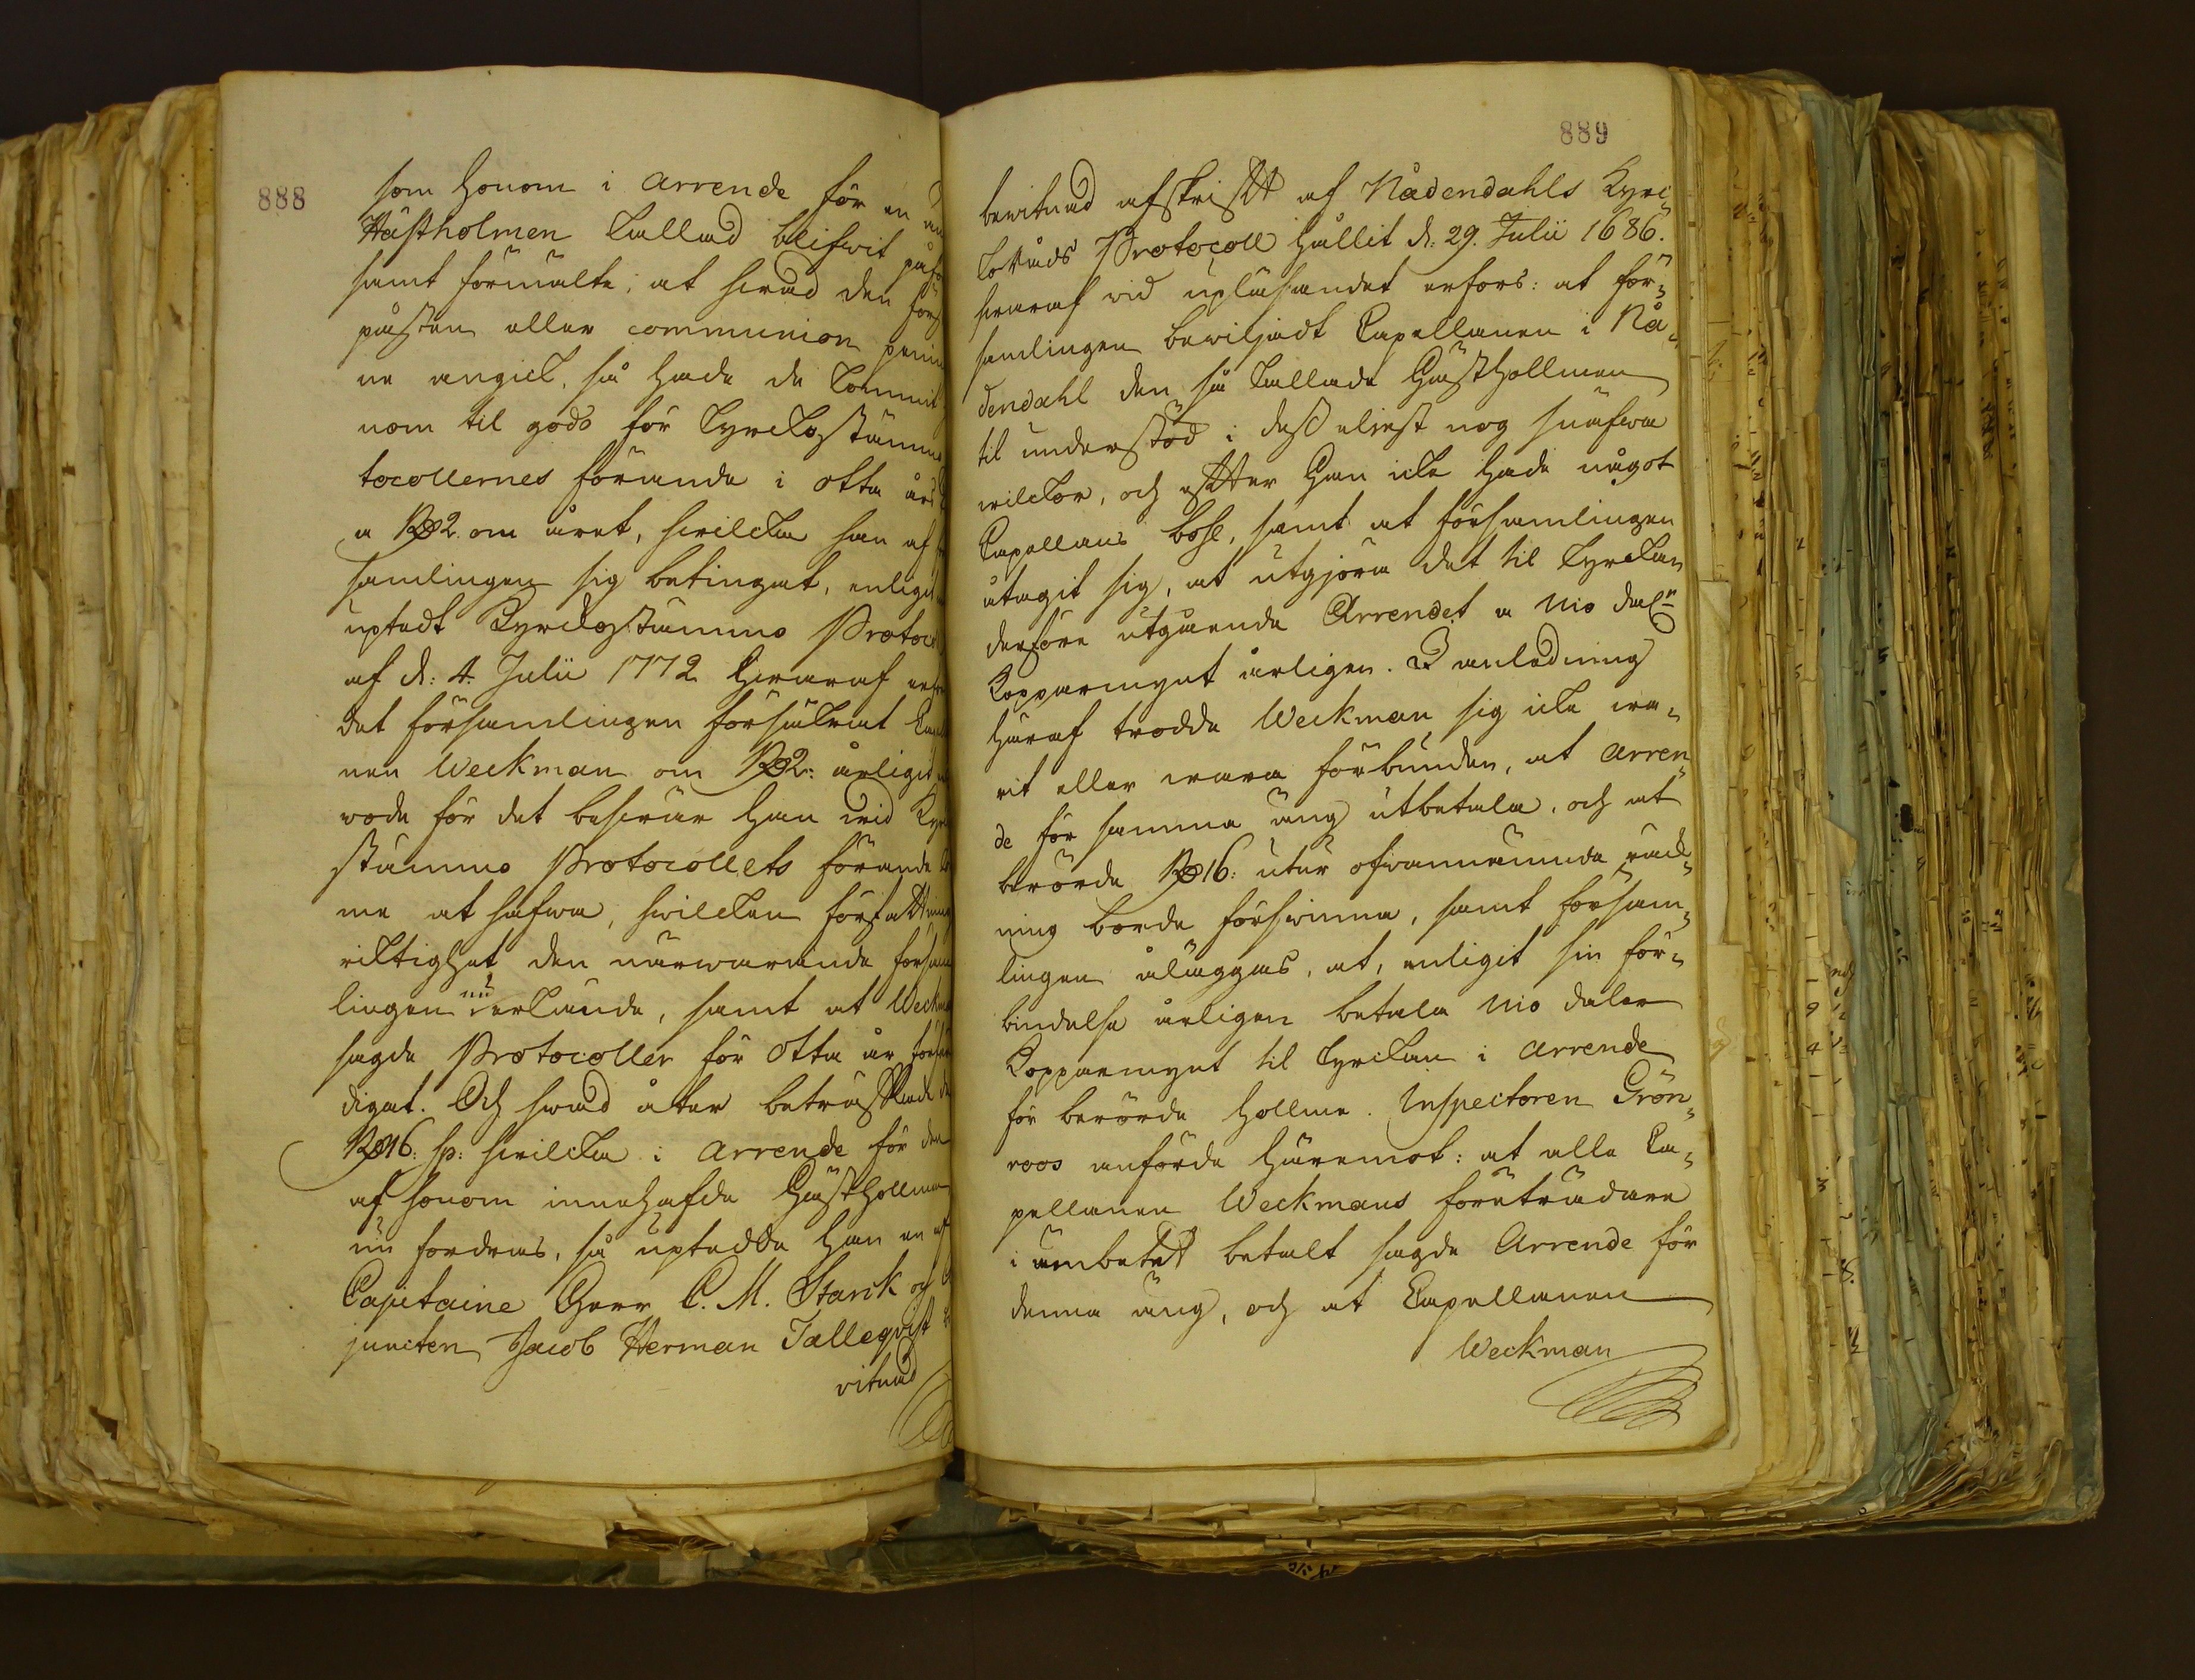 888
som honom i Arrende för en
Hästholmen kallad blifwit påfö
samt förmälte, at hwad den förs
påsten eller communion penin
ne angick, så hade de kommit
nom til godo för Kyrckostämme
tocollernes förande i otta års
a Rd 2. om året, hwilcka han af
samlingen sig betingat, enligit
uptedt Kyrckostämmo Protoco
af d: 4. Julii 1772 hwaraf
det församlingen försäkrat
nen Weckman om Rd 2: årligit
vode för det beswär han vid Kyrc
stämmo Protocollets förande
me at hafwa, hwilcken författning
riktighet den närwarande försam
lingen nu erkände, samt at Weckma
sagde Protocoller för otta år
digat. Och hwad åter beträffade de
Rd 16: sp: hwilcka i Arrende för den
af honom innehafde Hästhollmen
nu fordras, så uptedde han en af
Capitaine Herr C. M. Starck og
juncten Jacob Herman Tallegvist
vitnad
889
bewitnad afskrift af Nådendahls Kyrc-
koRåds Protocoll hållit d: 29. Julii 1686.
hwaraf vid upläsandet erfors: at för-
samlingen bewiljadt Capellanen i Nå-
dendahl den så kallade Hästhollmen
til understöd i dess eljest nog snäfwa
wilckor, och efter han icke hade något
Capellans bohl, samt at församlingen
åtagit sig, at utgjöra det til Kyrckan
derföre utgående Arrendet a Nio dal:r
Kopparmynt årligen. I anledning
häraf trodde Weckman sig icke wa-
rit eller wara förbunden, at Arren-
de för samma äng utbetala, och at
berörde Rd 16: utur ofwannämnda räck-
ning borde förswinna, samt försam-
lingen åläggas, at, enligit sin för-
bindelse årligen betala Nio daler
Kopparmynt til Kyrckan i Arrende
för berörde hollme. Inspectoren Grön-
roos anförde häremot: at alle Ca-
pellanen Weckmans företrädare
i ämbetet betalt sagde Arrende för
denna äng, och at Capellanen
Weckman